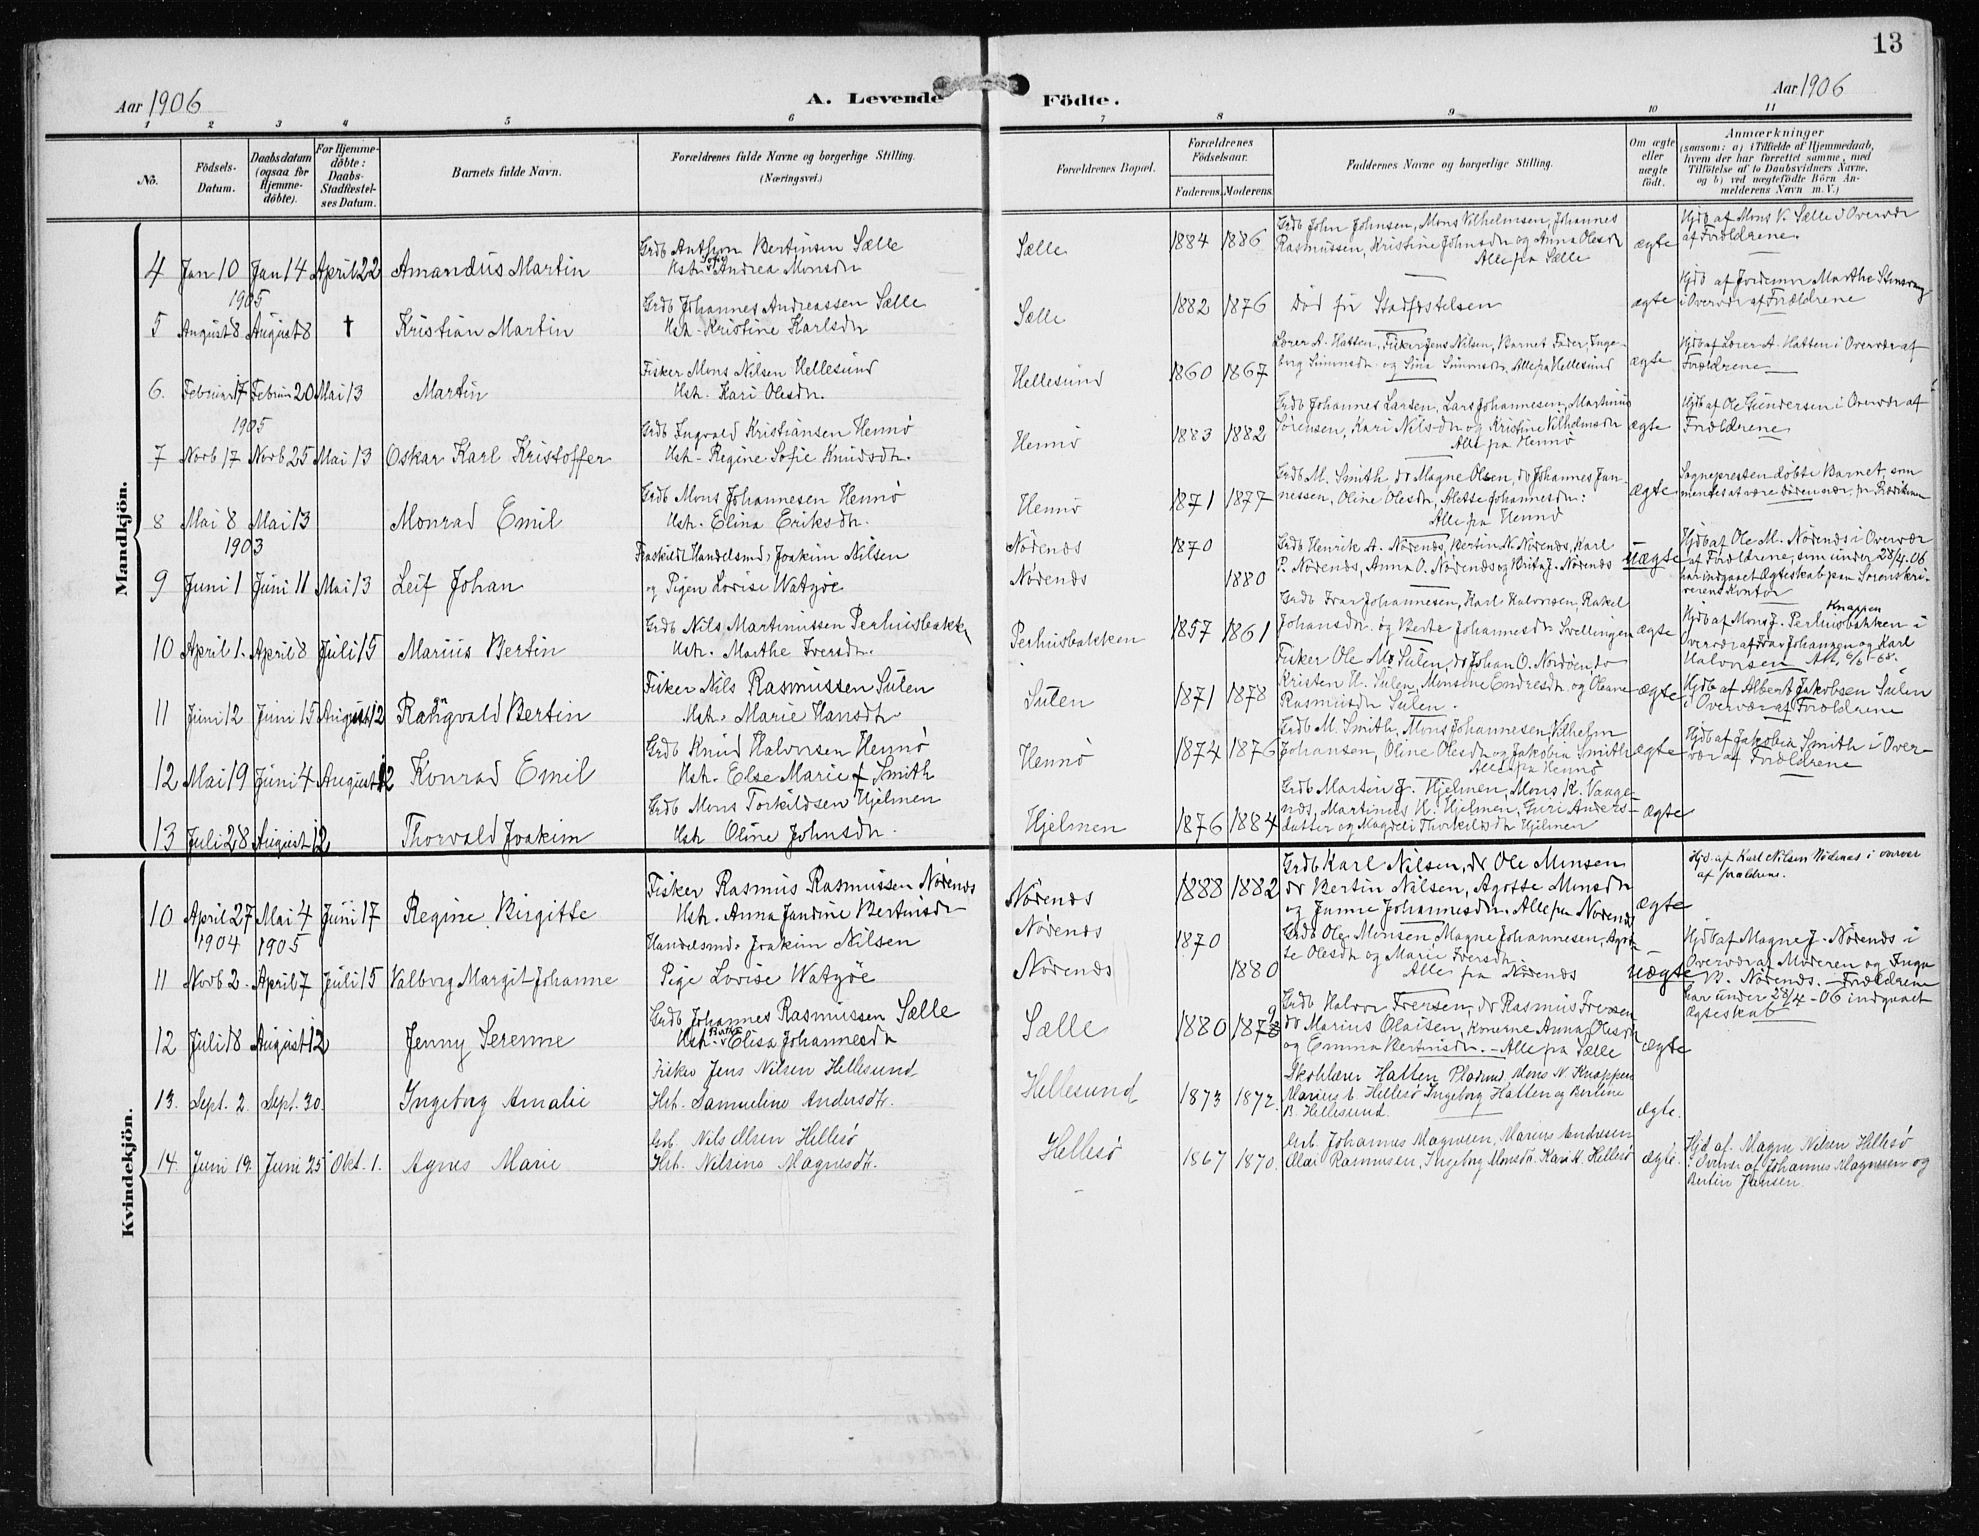 13
Aar 1906
A. Levende Födte.
Aar 1906
1 2 3 4 5 6 7 8 9 10 11
No.
Födsels-Datum.
Daabsdatum (ogsaa for Hjemme-döbte).
For Hjemme-döbte: Daabs-Stadfæstel-ses Datum.
Barnets fulde Navn.
Forældrenes fulde Navne og borgerlige Stilling.
(Næringsvei.)
Forældrenes Bopæl.
Forældrenes Födselsaar.
Faderens. Moderens.
Faddernes Navne og borgerlige Stilling.
Om ægte eller uægte födt.
Anmærkninger
(saasom: a) i Tilfælde af Hjemmedaab,
hvem der har forrettet samme, med
Tilföielse af to Daabsvidners Navne,
og b) ved uægtefödte Börn An-
melderens Navn m. V.)
Mandkjön.
4 Jan 10 Jan 14 April 22 Amandus Martin
Grdb Anthon Bertinsen Sælle
Hstr. Sofie Andrea Monsdtr
Sælle 1884 1886
Grdb John Johnsen, Mons Vilhelmsen, Johannes
Rasmussen, Kristine Johnsdtr og Anna Olesdtr
Alle fra Sælle
ægte
Hjdb af Mons V. Sælle i Overvær
af Forældrene.
1905
5 August 8 August 8 † Kristian Martin
Grdb Johannes Andreassen Sælle
Hstr. Kristine Karlsdtr
Sælle 1882 1876
Död før Stadfæstelsen
ægte
Hjdb af Jordemor Marthe
i Overvær af Forældrene
6. Februar 17 Februar 20 Mai 13 Martin
Fisker Mons Nilsen Hellesund
Hstr. Kari Olesdtr.
Hellesund 1860 1867
Lærer A. Hatten, Fisker Jens Nilsen, Barnets Fader, Inge-
borg Simonsdtr og Sina Simonsdtr. Alle fra Hellesund
ægte
Hjdb af Lærer A. Hatten i Overvær af
Forældrene
1905
7 Novb 17 Novb 25 Mai 13 Oskar Karl Kristoffer
Grdb Ingvald Kristiansen Hennö
Hstr. Regine Sofie Knudsdtr.
Hennö 1883 1882
Grdb Johannes Larsen, Lars Johannesen, Martinus
Sörensen, Kari Nilsdtr og Kristine Vilhelmsdtr
Alle fra Hennö
ægte
Hjdb af Ole Gundersen i Overvær af
Forældrene
8 Mai 8 Mai 13 Monrad Emil
Grdb Mons Johannesen Hennö
Hstr. Elina Eriksdtr.
Hennö 1871 1877
Grdb M. Smith, do Magne Olsen, do Johannes Jan-
nessen, Oline Olesdtr, Alette Johannesdtr:
Alle fra Hennö
ægte
Sognepresten döbte Barnet, som
mentes at være döden nær, før
1903
9 Juni 1 Juni 11 Mai 13 Leif Johan
Fraskildt Handelsmd. Joakim Nilsen
og Pigen Lovise Watzöe
Nödenæs
Nödenæs
1870
1880
Grdb Henrik A. Nödenæs, Bertin N. Nödenæs, Karl
P. Nödenæs, Anna O. Nödenæs og Brita J. Nödenæs
uægte
Hjdb af Ole M. Nödenæs i Overvær
af Forældrene, som under 28/4-06
har indgaaet Ægteskab paa Sorenskri-
verens Kontor
10 April 1. April 8 Juli 15 Marius Bertin
Grdb Nils Martinussen Perhusbakk
Hstr. Marthe Iversdtr.
Perhusbakken 1857 1861
Grdb Ivar Johannesen, Karl Halvorsen, Rakel
Johansdtr. og Berte Johannesdtr Svellingen
ægte
Knappen
Hjdb af Mons J. Perhusbakken i
Overvær af Ivar Johannesen og Karl
Halvorsen
11 Juni 12 Juni 15 August 12 Rangvald Bertin
Fisker Nils Rasmussen Sulen
Hstr. Marie Hansdtr
Sulen 1871 1878
Fisker Ole M. Sulen, do Johan O. Nordöen, do
Kristen H. Sulen, Monsine Endresdtr og Oleane
Rasmusdtr Sulen.
ægte
Hjdb af Albert Jakobsen Sulen
i Overvær af Forældrene
12 Mai 19 Juni 4 August 12 Konrad Emil
Grdb Knud Halvorsen Hennö
Hstr. Else Marie f. Smith
Hennö 1874 1876
Grdb M. Smith, Mons Johannesen, Vilhelm
Johansen, Oline Olesdtr og Jakobia Smith
Alle fra Hennö
ægte
Hjdb af Jakobia Smith i Over-
vær af Forældrene
13 Juli 28 August 12 Thorvald Joakim
Grdb Mons Torkildsen Hjelmen
Hstr Oline Johnsdtr.
Hjelmen 1876 1884
Grdb Martin J. Hjelmen, Mons K. Vaage-
næs, Martinus H. Hjelmen, Guri Anders-
datter og Magdeli Thorkilsdtr Hjelmen
ægte
Kvindekjön.
10 April 27 Mai 4 Juni 17 Regine Birgitte
Fisker Rasmus Rasmussen Nödenæs
Hstr. Anna Jandine Bertinsdtr
Nödenæs 1888 1882
Grdb Karl Nilsen, do Ole Monsen
do Bertin Nilsen, Agotte Monsdtr
og Janne Johannesdtr. Alle fra Nödenæs
ægte
Hjd. af Karl Nilsen Nödenæs i overvær
af forældrene.
1904 1905
11 Novb 2. April 7 Juli 15 Valborg Margit Johanne
Handelsmd. Joakim Nilsen
Pige Lovise Watzöe
Nödenæs
Nödenæs
1870
1880
Grdb Ole Monsen, Magne Johannesen, Agot-
te Olesdtr og Marie Iversdtr
Alle fra Nödenæs
uægte
Hjdb af Magne J. Nödenæs i
Overvær af Moderen og Inga
B. Nödenæs. Forældrene
har under 28/4-06 indgaaet
Ægteskab
12 Juli 8 August 12 Jenny Serenne
Grdb Johannes Rasmussen Sælle
Hstr. Elisa Johannesdtr
Sælle 1880 1879
Grdb Halvor Iversen, do Rasmus Iversen
do Marius Olaisen, Konerne Anna Olesdtr
og Emma Bertinsdtr. Alle fra Sælle
ægte
13. Sept. 2. Sept. 30. Ingeborg Amalie
Fisker Jens Nilsen Hellesund
Hst. Samueline Andersdtr.
Hellesund 1873 1872.
Skolelærer Hatten, Mons N. Knappen
Marius Hellesö Ingeborg Hatten og Berline
B. Hellesund.
ægte.
14. Juni 19. Juni 25 Okt. 1. Agnes Marie
Grb. Nils Olsen Hellesö
Hst. Nilsine Magnesdtr.
Hellesö 1867 1870.
Grb. Johannes Magnesen, Marius Andresen
Olai Rasmussen, Ingeborg Monsdtr. Kari H. Hellesö
ægte.
Hjd. af. Magne Nilsen Hellesö
i Overvær af Johannes Magnesen og
Bertin Jensen.